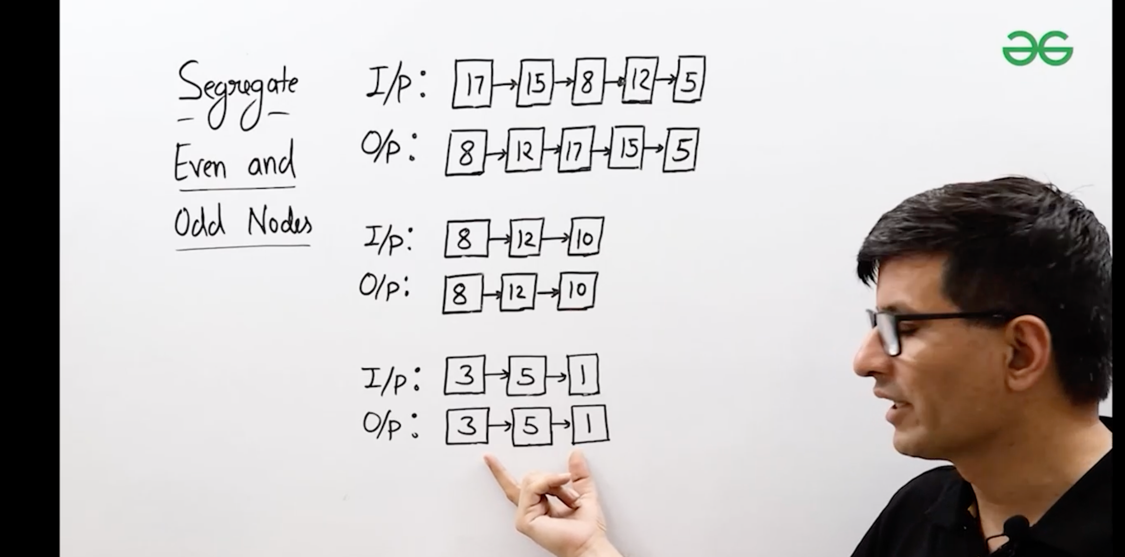 Segregate
Even and
Odd Nodes
I/p: 17→15→8→12→5
O/p: 8→12→17→15→5
I/p: 8→12→10
O/p: 8→12→10
I/p: 3→5→1
O/p: 3→5→1